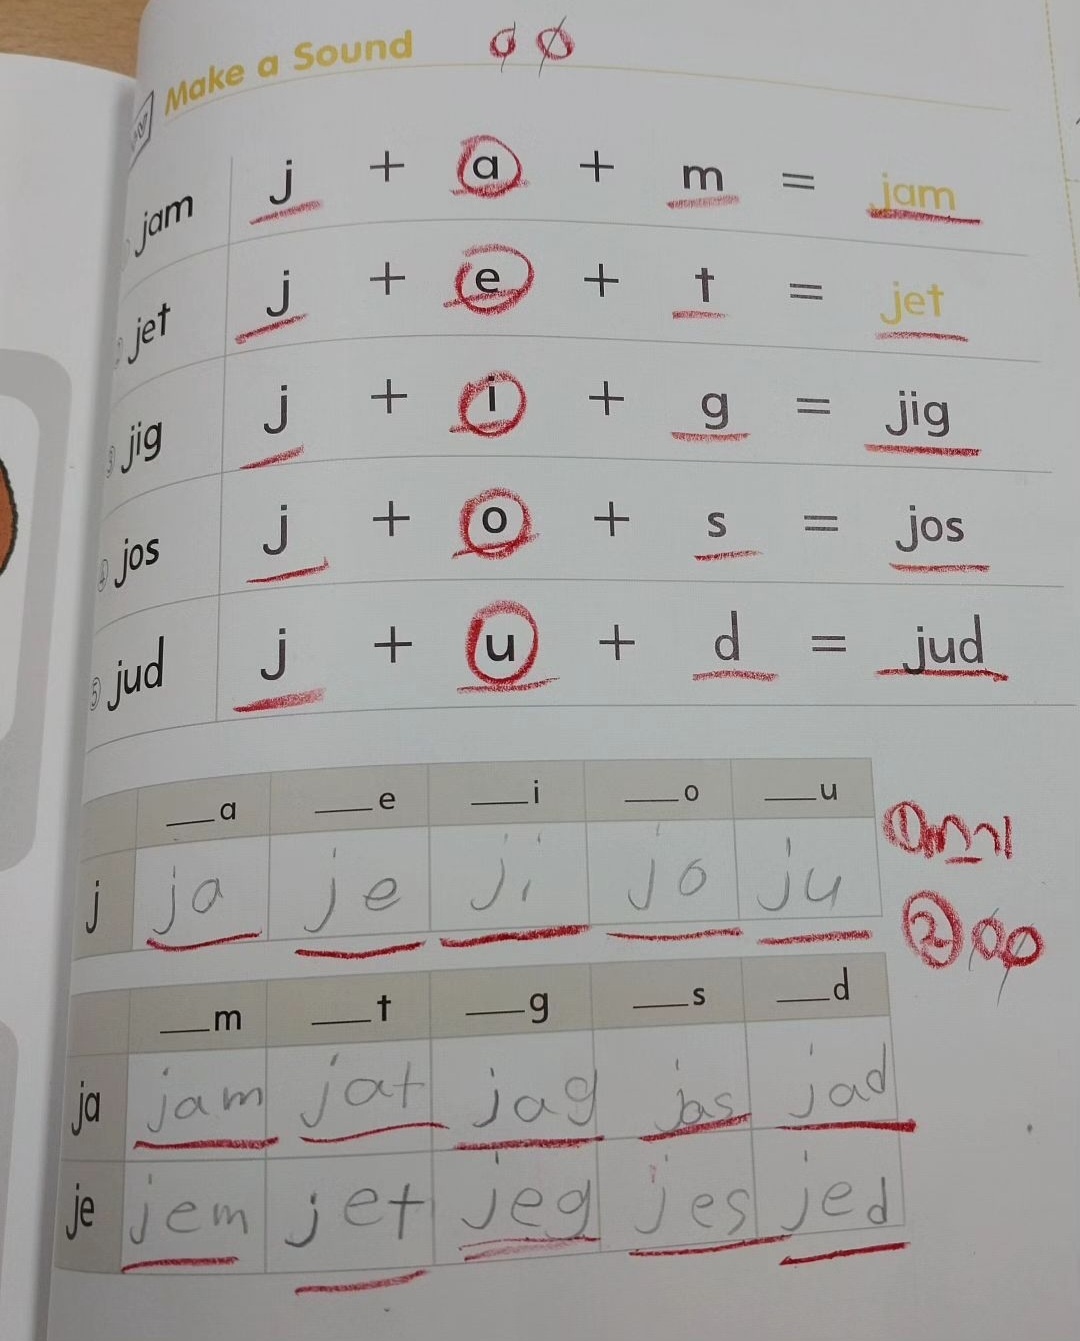 Make a Sound
① jam j + a + m = jam
② jet j + e + t = jet
③ jig j + i + g = jig
④ jos j + o + s = jos
⑤ jud j + u + d = jud
__a __e __i __o __u
j ja je ji jo ju
②
__m __t __g __s __d
ja jam jat jag jas jad
je jem jet jeg jes jed